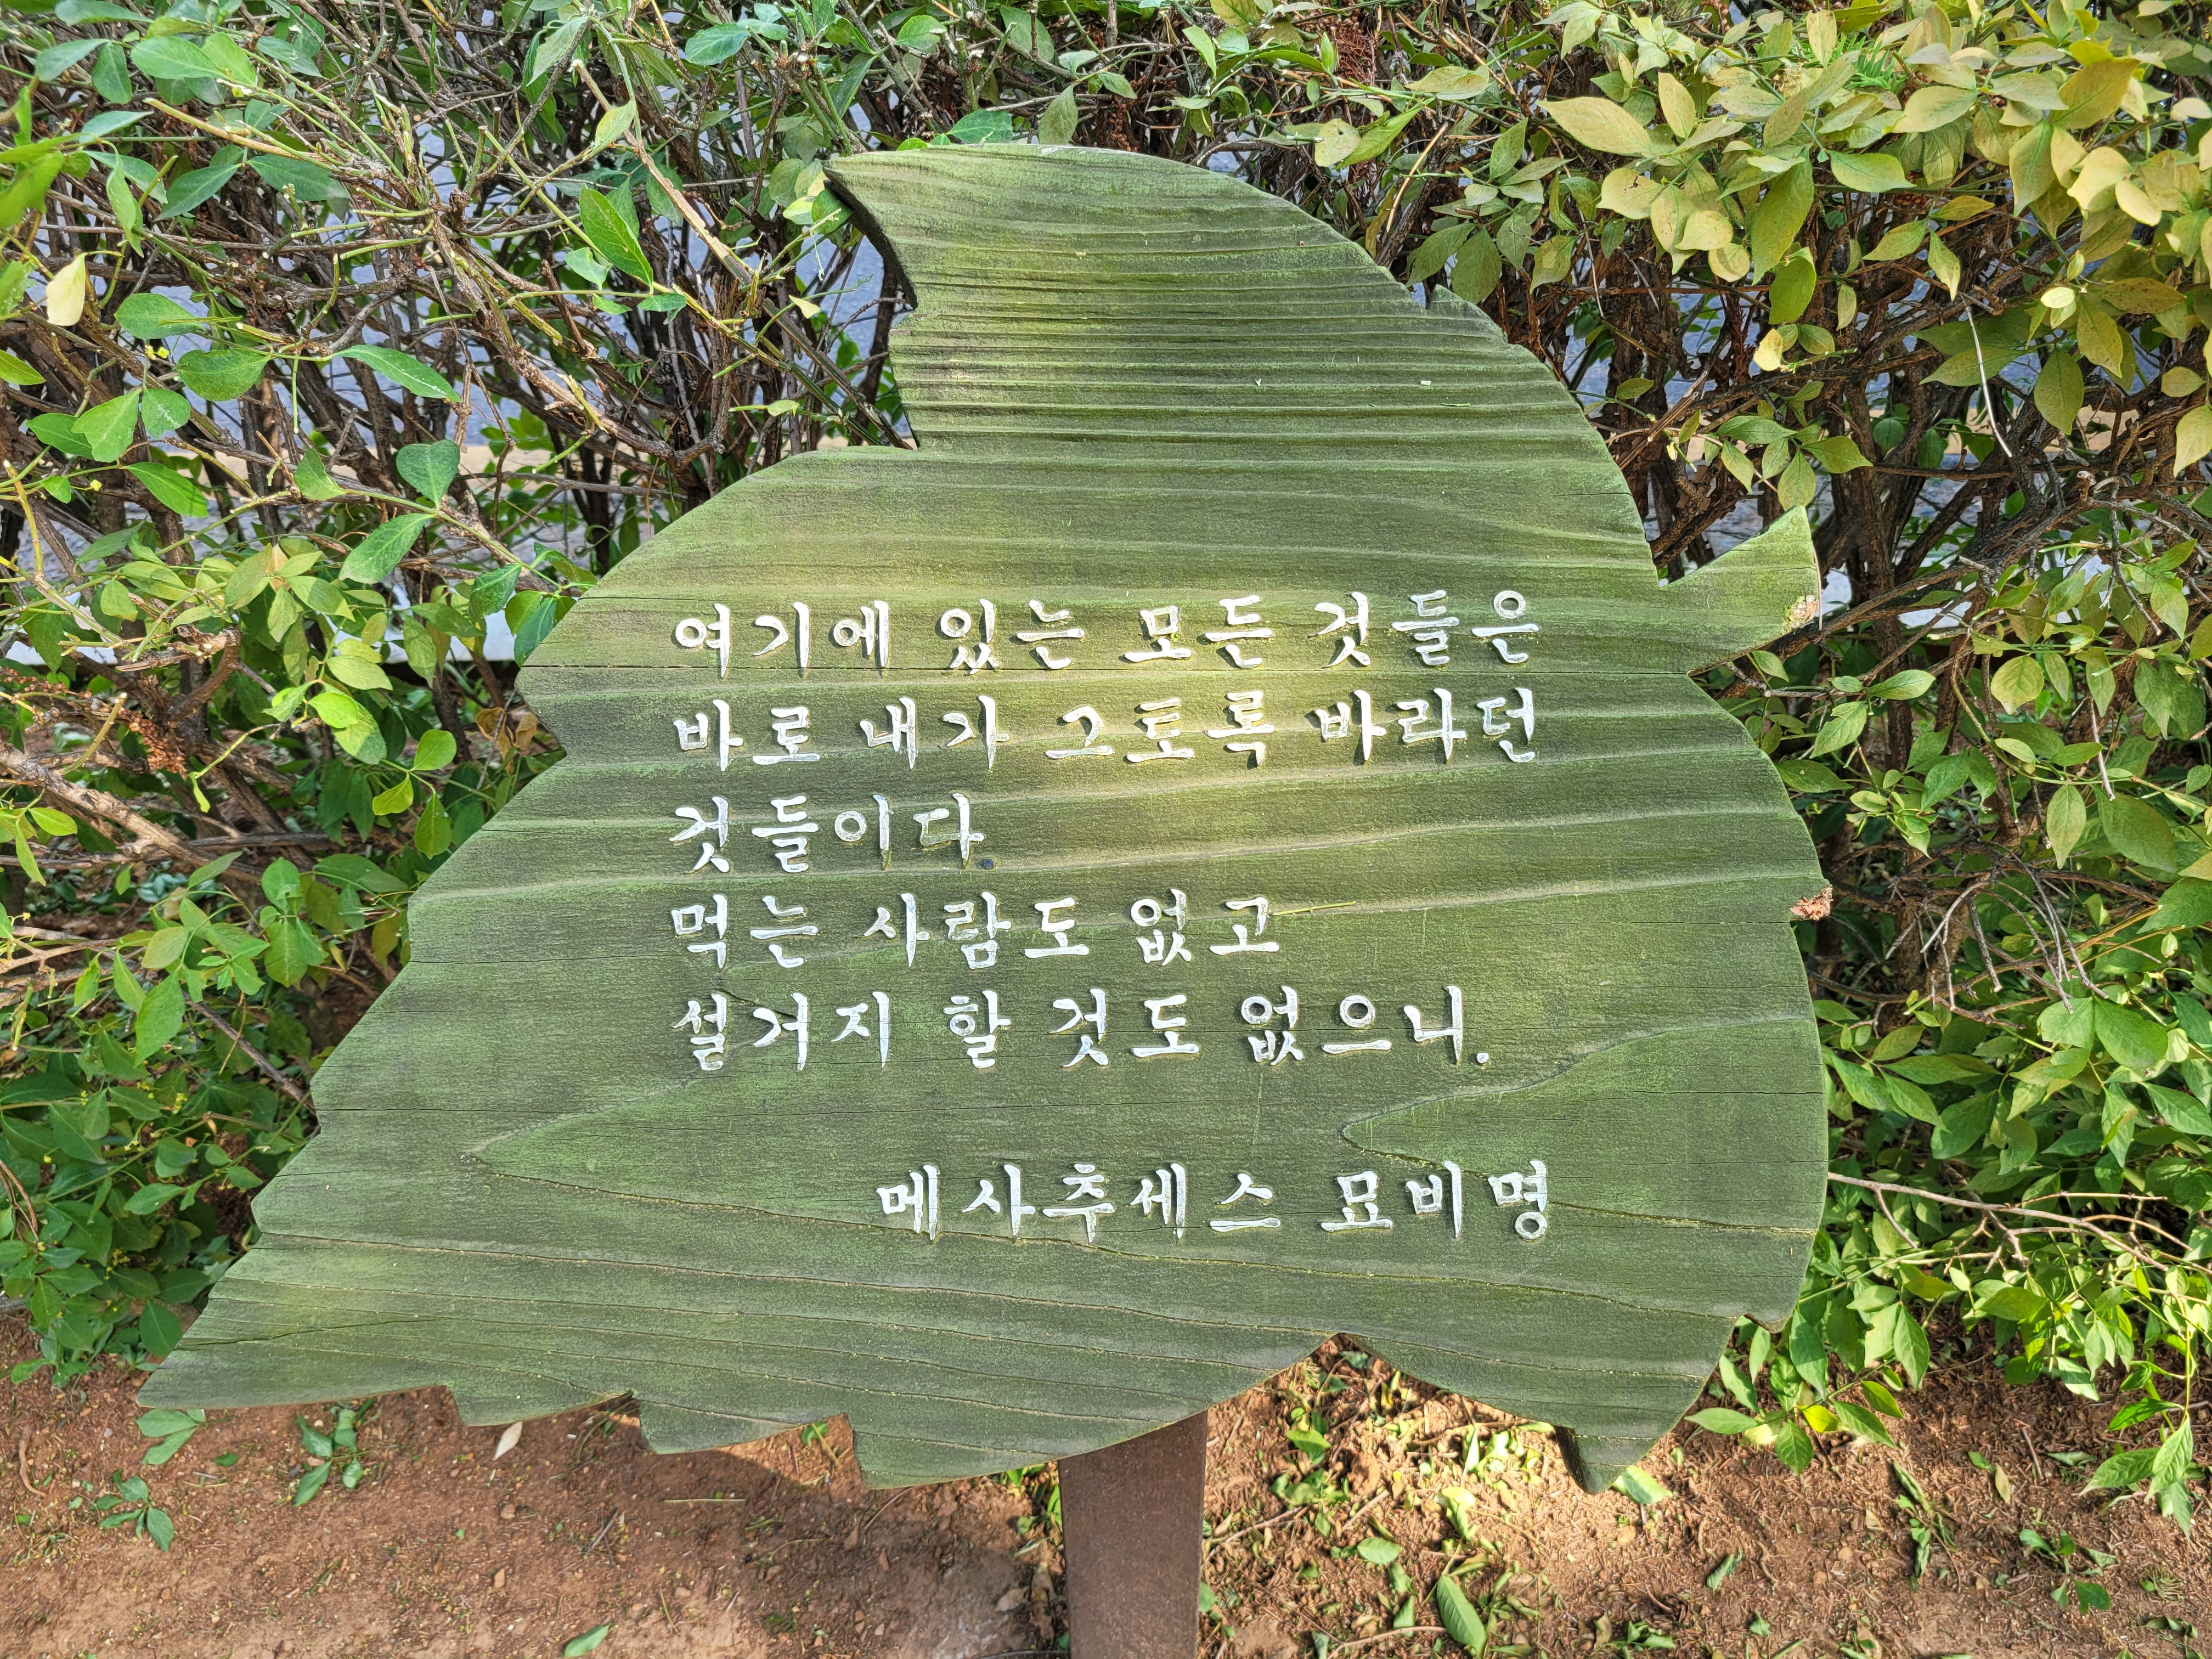 여기에 있는 모든 것들은
바로 내가 그토록 바라던
것들이다.
먹는 사람도 없고
설거지 할 것도 없으니.
메사추세스 묘비명